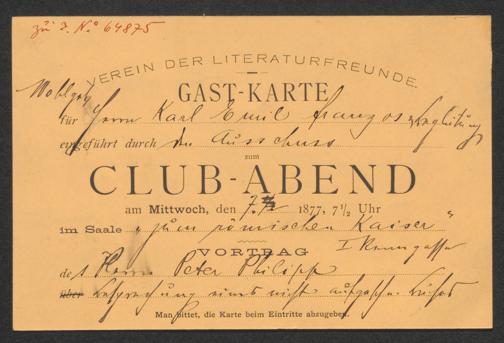 zu I. No 64875
VEREIN DER LITERATURFREUNDE.
GAST-KARTE
Wohlgeb
für Herrn Karl Emil Franzos & Begleitung
eingeführt durch den Ausschuss
zum
CLUB-ABEND
am Mittwoch, den 7. 1877, 7½ Uhr
im Saale „zum römischen Kaiser“
I Renngasse
VORTRAG
des Herrn Peter Philipp
über Besprechung eines nicht
Man bittet, die Karte beim Eintritte abzugeben.